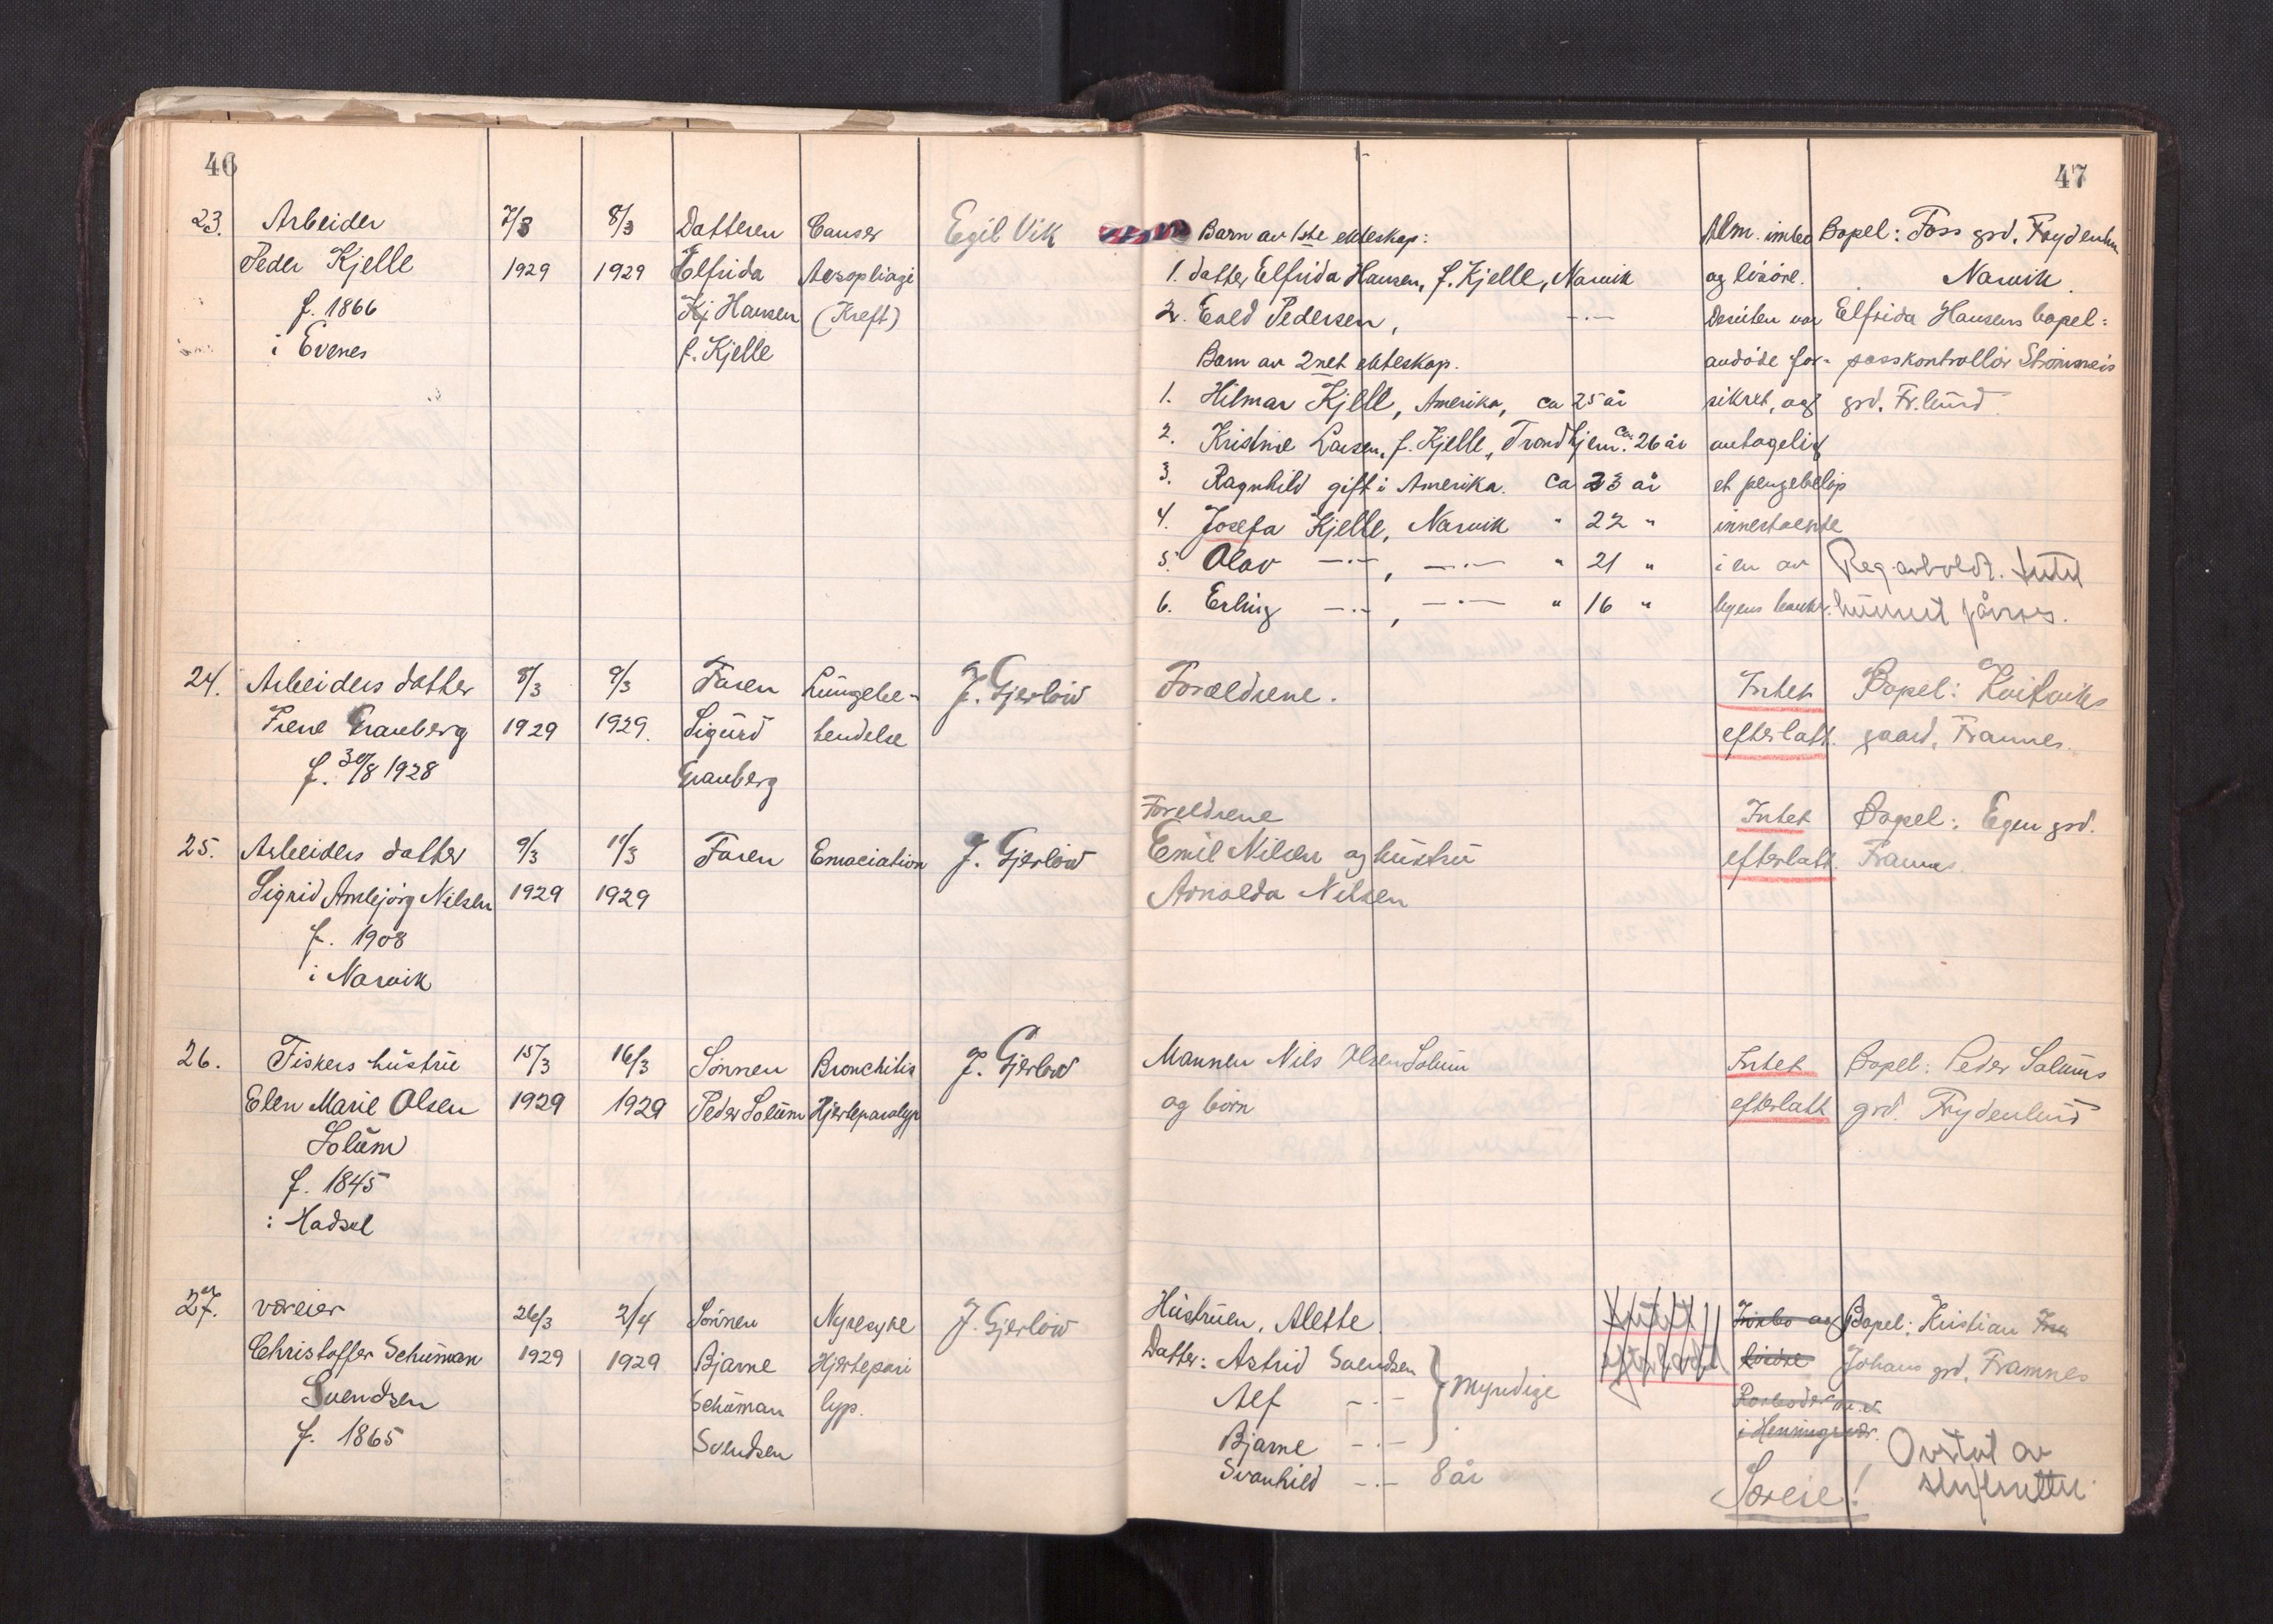 46
23. Arbeider 7/3 8/3 Datteren Cancer Egil Vik
Peder Kjelle 1929 1929 Elfrida
f. 1866 Kj Hansen (Kreft)
i Evenes f. Kjelle
24. Arbeiders datter 8/3 9/3 Faren Lungebe-
J. Gjerløw
Irene Granberg 1929 1929. Sigurd tendelse
f. 30/8 1928 Granberg
25. Arbeiders datter 9/3 11/3 Faren Emaciation J. Gjerløw
Sigrid Annbjørg Nilsen 1929 1929
f. 1908
i Narvik
26. Fiskers hustru 15/3 16/3 Sønnen Bronchitis J. Gjerløw
Elen Marie Olsen 1929 1929 Peder Solum Hjerteparalyp
Solum
f. 1845
i Hadsel
27. væreier 26/3 2/4 Sønnen Nyresyke J. Gjerløw
Christoffer Schuman 1929 1929 Bjarne Hjertepara
Svendsen Schuman lyp.
f. 1865 Svendsen
47
Barn av 1ste ekteskap: Alm. innbo Bopel: Foss grd. Frydenlun
1. datter Elfrida Hansen, f. Kjelle, Narvik og løsøre. Narvik.
2. Evald Pedersen, -"- Desuten var Elfrida Hansens bopel:
Barn av 2net ekteskap. avdøde for- passkontrollør Strømsnes
1. Hilmar Kjelle, Amerika, ca 25 år sikret, og grd. Fr.lund.
2. Kristine Larsen, f. Kjelle, Trondhjem. ca. 26 år antagelig
3. Ragnhild gift i Amerika. ca 23 år et pengebeløp
4. Josefa Kjelle, Narvik " 22 " innestaende
5. Olav -"-, -"- " 21 " i en av
6. Erling -"-, -"- " 16 " byens banker.
Foreldrene. Intet Bopel:
efterlatt. gaard, Framnes.
Foreldrene Intet Bopel: Egen grd.
Emil Nilsen og hustru efterlatt. Framnes.
Arnolda Nilsen
Mannen Nils Olsen Solum Intet Bopel: Peder Solums
og børn efterlatt grd. Frydenlund
Hustruen, Alette. Intet Innbo og Bopel: Kristian
Datter: Astrid Svendsen efterlatt løsøre Johans grd. Framnes
Alf -"- myndige Rorboder m.v.
Bjarne -"- i Henningsvær.
Svanhild -"- 8 år
Særeie! Overtat av
skifteretten